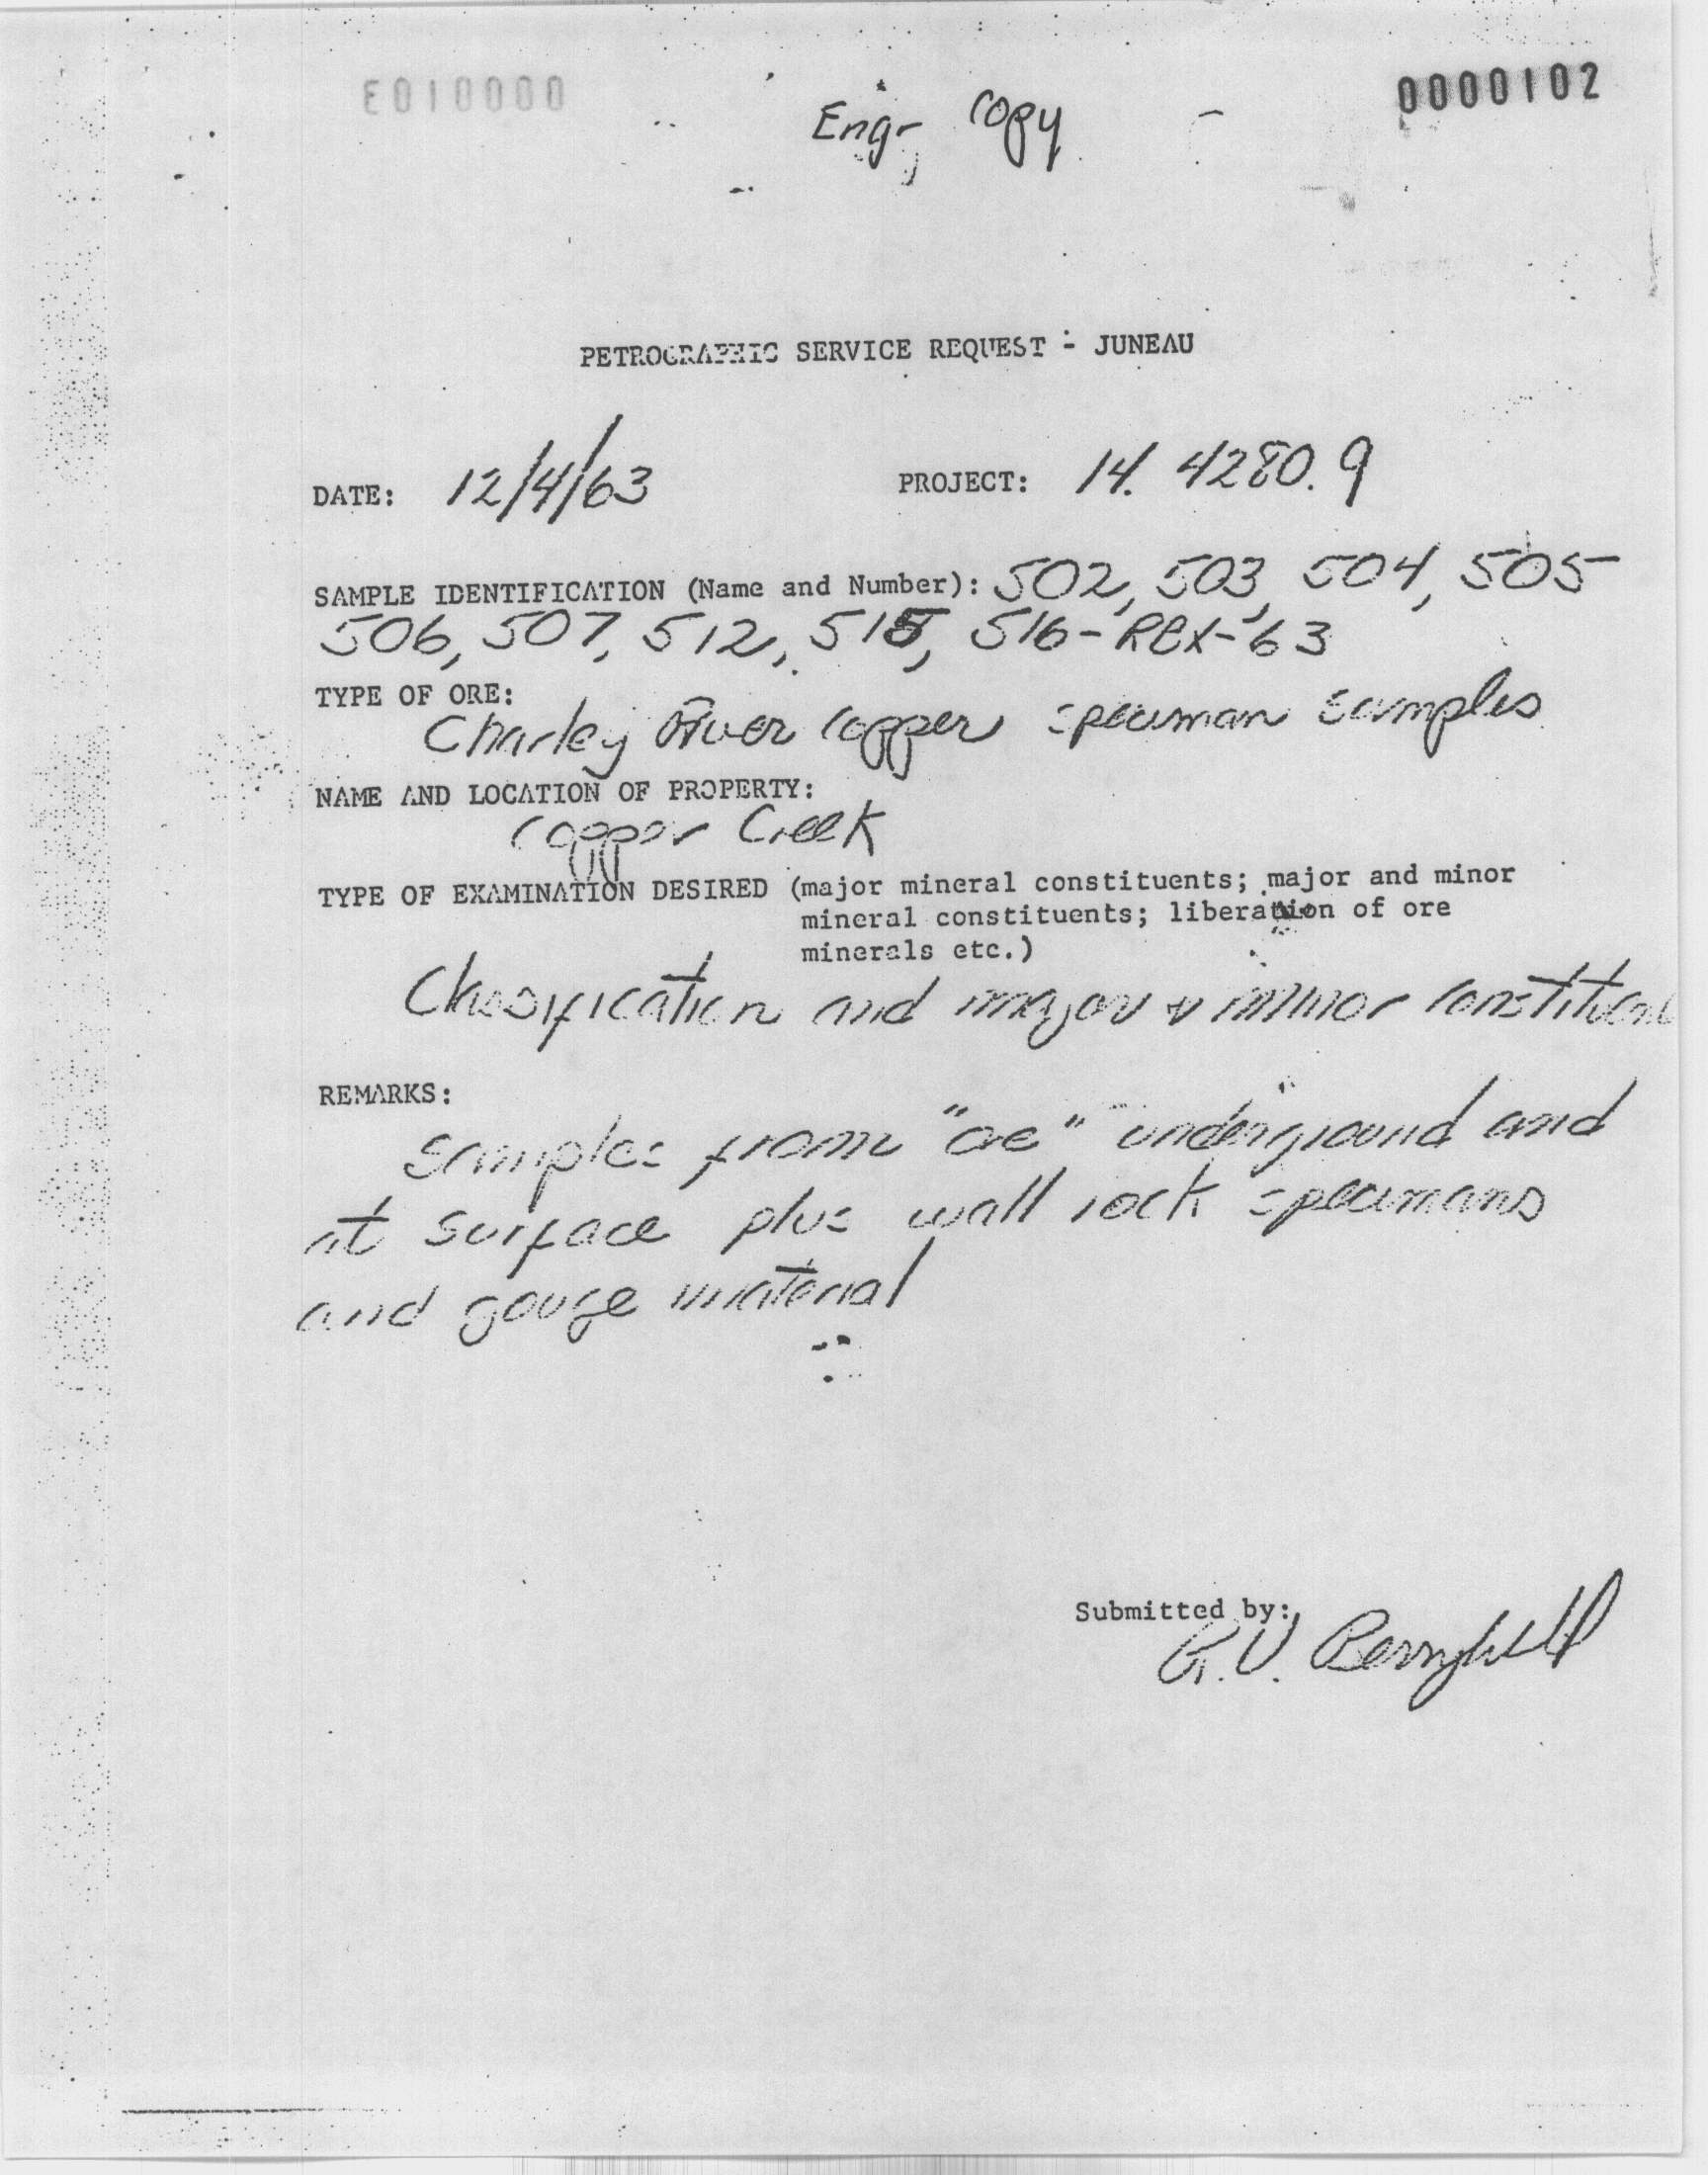 E010000 0000102
Engr Copy
PETROGRAPHIC SERVICE REQUEST - JUNEAU
DATE: 12/4/63 PROJECT: 14. 4280.9
SAMPLE IDENTIFICATION (Name and Number): 502, 503, 504, 505
506, 507, 512, 515, 516-REX-63
TYPE OF ORE:
Charley River Copper speciman samples
NAME AND LOCATION OF PROPERTY:
Copper Creek
TYPE OF EXAMINATION DESIRED (major mineral constituents; major and minor
mineral constituents; liberation of ore
minerals etc.)
Classification and major & minor constituent
REMARKS:
samples from "ore" underground and
at surface plus wall rock specimans
and gouge material
Submitted by:
Berryhill